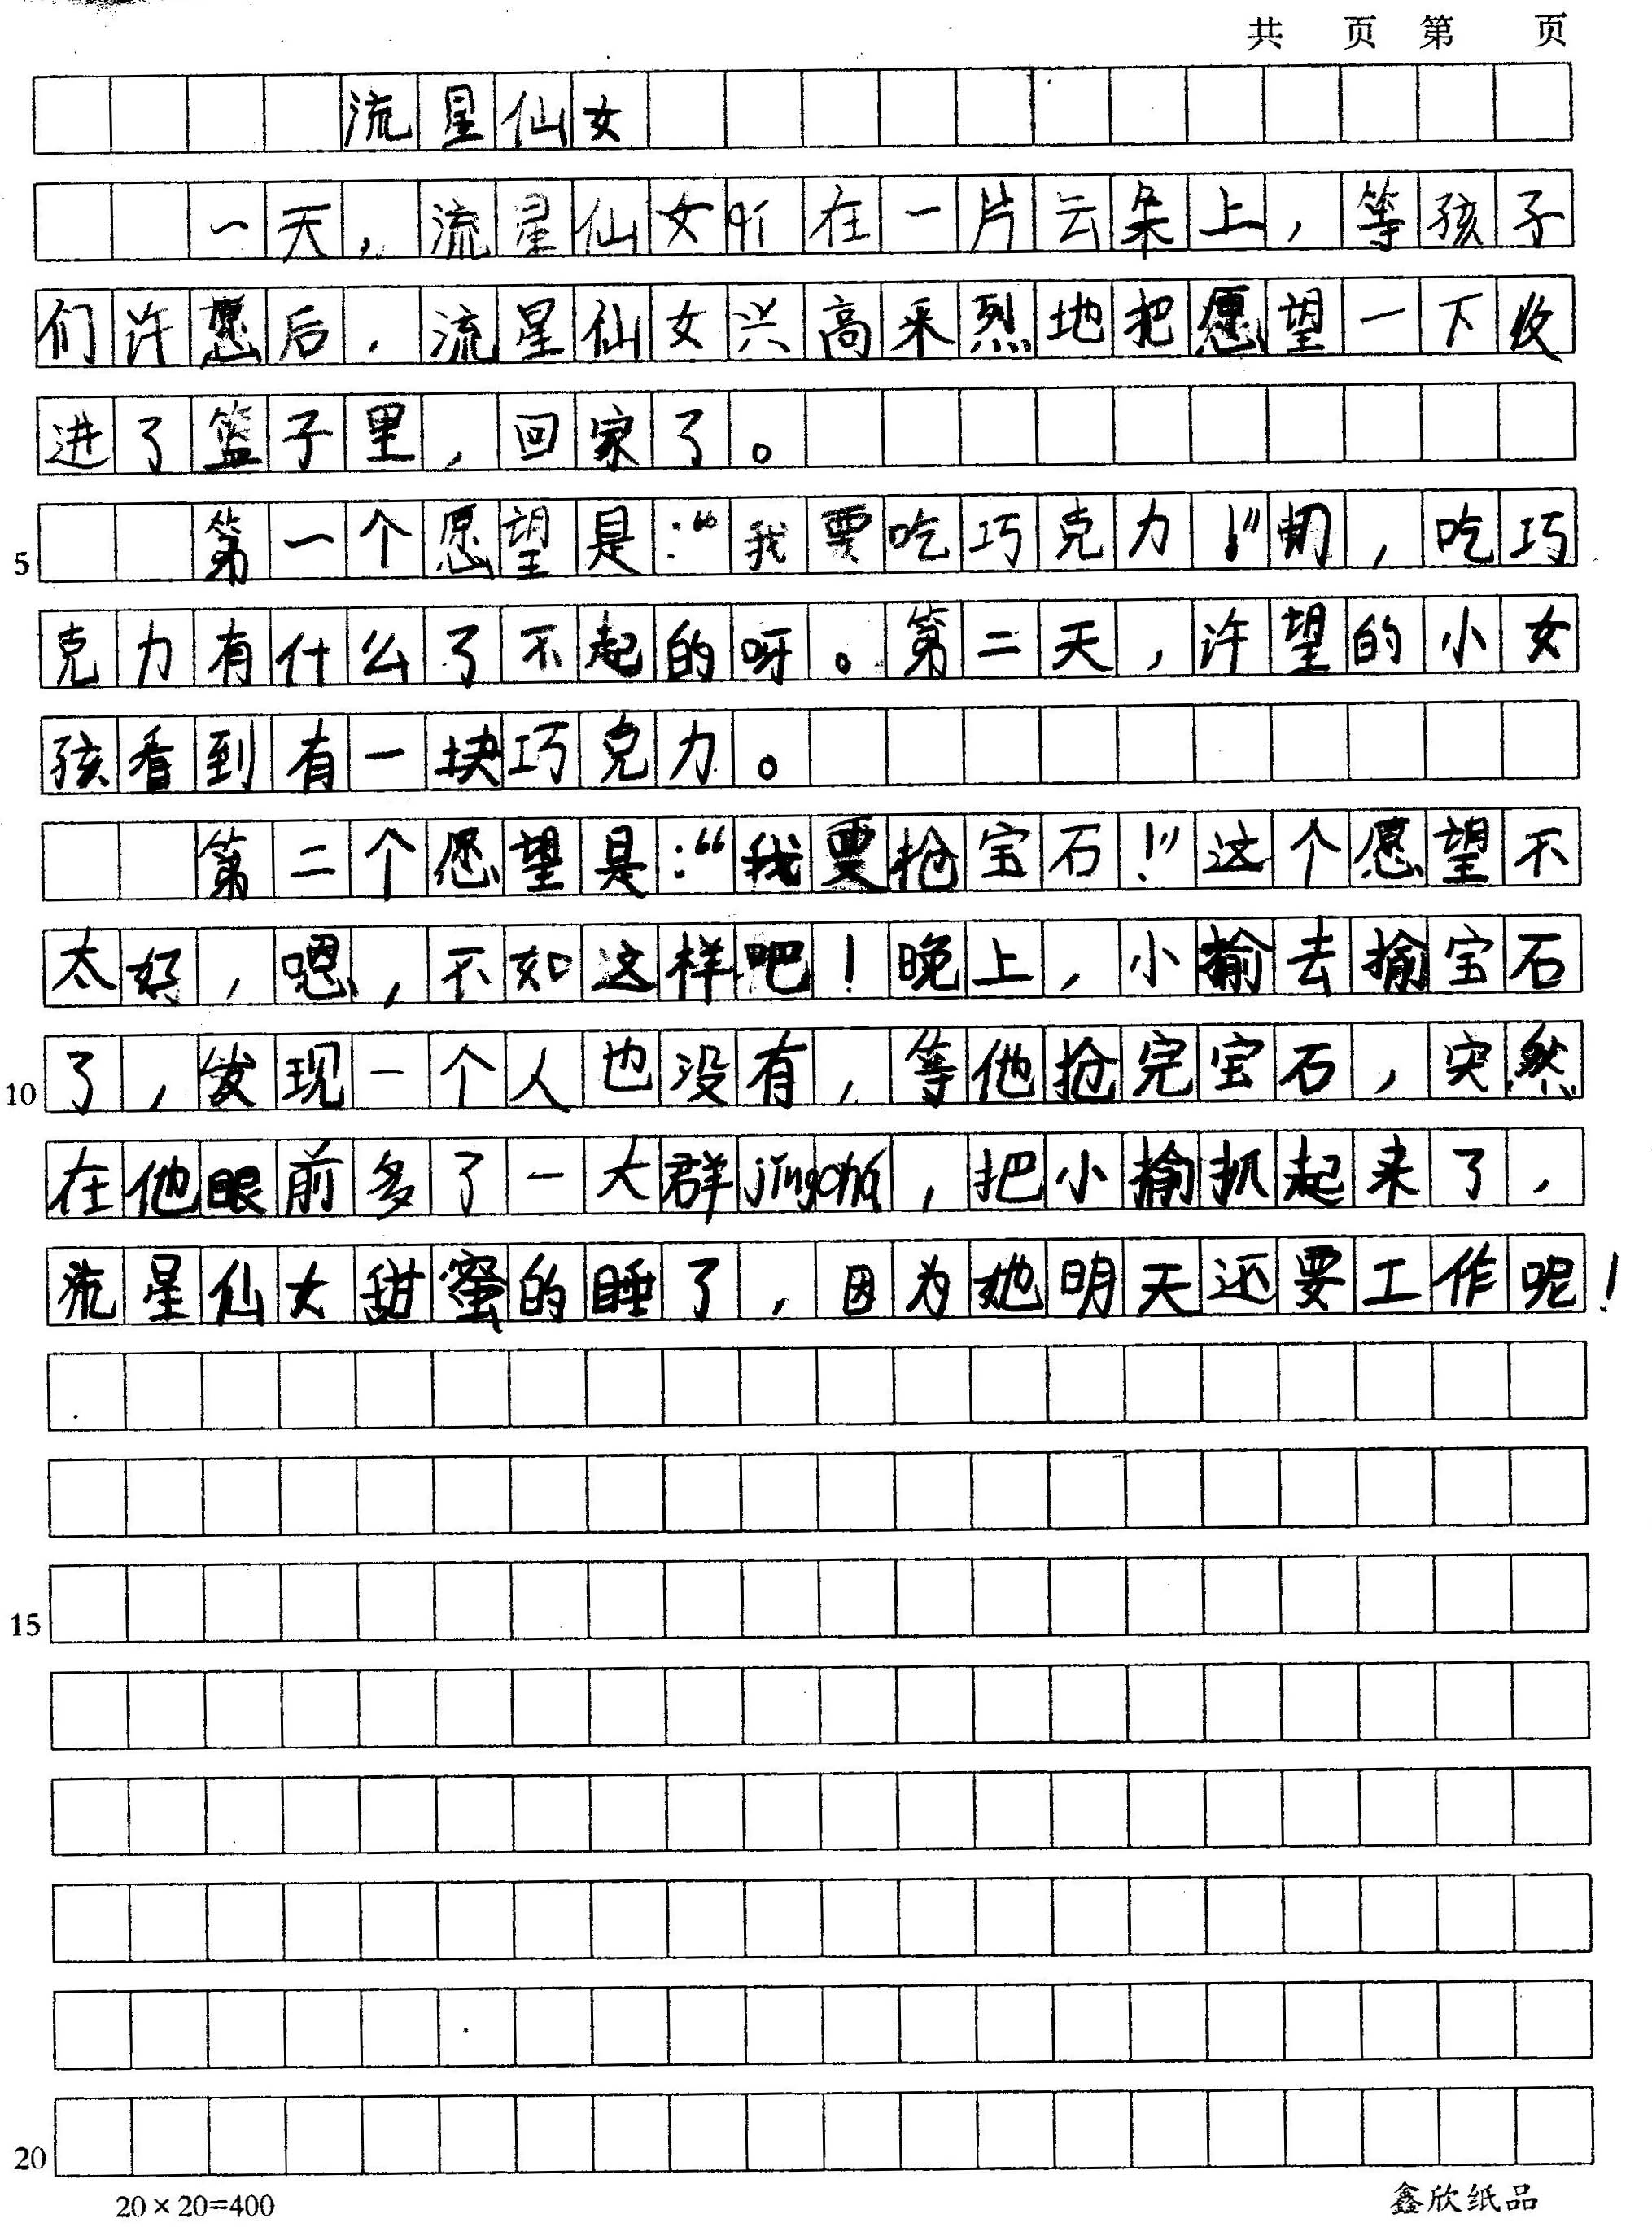 共 页 第 页
流星仙女
一天，流星仙女在一片云朵上，等孩子
们许愿后，流星仙女兴高采烈地把愿望一下收
进了篮子里，回家了。
第一个愿望是：“我要吃巧克力！”切，吃巧
5
克力有什么了不起的呀。第二天，许望的小女
孩看到有一块巧克力。
第二个愿望是：“我要抢宝石！”这个愿望不
太好，嗯，不如这样吧！晚上，小揄去揄宝石
了，发现一个人也没有，等他抢完宝石，突然
10
在他眼前多了一大群jǐngchá，把小揄抓起来了，
流星仙女甜蜜的睡了，因为她明天还要工作呢！
15
20
20×20=400
鑫欣纸品